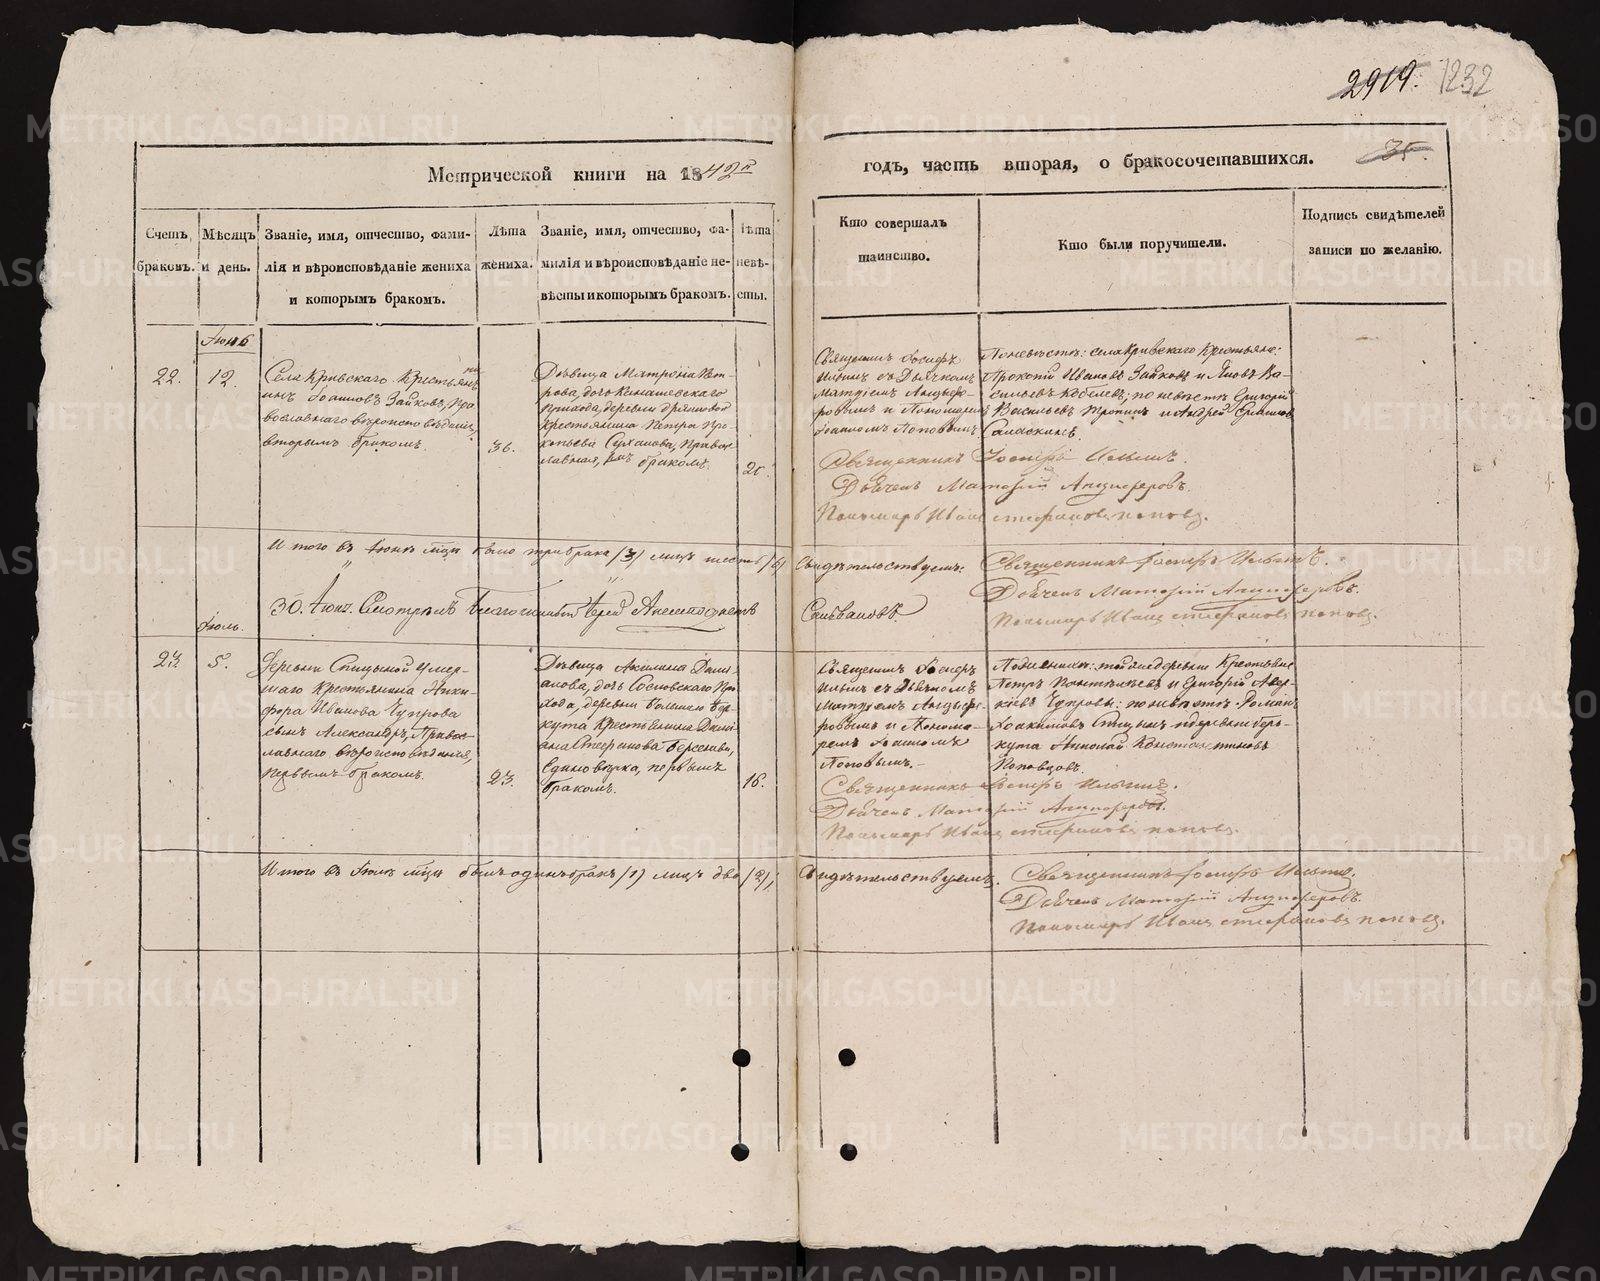 2919. 1232
Метрической книги на 1842й
годъ, часть вторая, о бракосочетавшихся.
35.
Счетъ браковъ.
Мѣсяцъ и день.
Званіе, имя, отчество, фами-
лія и вѣроисповѣданіе жениха
и которымъ бракомъ.
Лѣта
жениха.
Званіе, имя, отчество, фа-
милія и вѣроисповѣданіе не-
вѣсты и которымъ бракомъ.
Лѣта
невѣ-
сты.
Кто совершалъ
таинство.
Кто были поручители.
Подпись свидѣтелей
записи по желанію.
22.
12.
Села Кривскаго Крестьян
инъ Іоанновъ Зайковъ, Пра
вославнаго вѣроисповѣданія,
вторымъ бракомъ.
36.
Дѣвица Матрона Пет-
рова, дочь
прихода, деревни
крестьянина Петра Про-
копьева Суханова, Правос
лавная, бракомъ.
20.
Священникъ Іосифъ
Ильинъ съ Дьячкомъ
Матѳіемъ Анцыфе-
ровымъ и Пономаремъ
Іоанномъ Поповымъ.
По невѣстѣ: села Кривскаго Крестьяне:
Прокопій Ивановъ Зайковъ и Яковъ Ва-
сильевъ Кобелевъ; по невѣстѣ Григорій
Васильевъ и Андрей
Священникъ Іосифъ Ильинъ.
Дьячекъ Матѳій Анцыферовъ.
Пономарь Иванъ Стефановъ Поповъ.
Итого въ Іюнѣ мцѣ было три брака /3/ лицъ шесть /6/
Свидѣтельствуемъ:
Священникъ Іосифъ Ильинъ.
Дьячекъ Матѳій Анцыферовъ.
Пономарь Иванъ Стефановъ Поповъ.
30. Іюня. Смотрѣлъ
Селивановъ
Іюль.
23
5.
Деревни Спицыной умер-
шаго Крестьянина Ники-
фора Иванова Чупрова
сынъ Александръ, Правос-
лавнаго вѣроисповѣданія,
первымъ бракомъ.
23.
Дѣвица Акилина Даміа-
нова, дочь Сосновскаго При
хода, деревни большей Бер-
кута Крестьянина Дамі-
ана Стефанова
Единовѣрка, первымъ
бракомъ.
16.
Священникъ Іосифъ
Ильинъ съ Дьячкомъ
Матѳіемъ Анцыфе-
ровымъ и Понома-
ремъ Іоанномъ
Поповымъ.
По женихѣ: той же деревни Крестьяне
Петръ и Григорій Авер-
кіевъ Чупровы: по невѣстѣ Романъ
Іоакимовъ и деревни Бер-
кута Николай Константиновъ
Священникъ Іосифъ Ильинъ.
Дьячекъ Матѳій Анцыферовъ.
Пономарь Иванъ Стефановъ Поповъ.
Итого въ Іюлѣ мцѣ былъ одинъ бракъ /1/ лицъ два /2/
Свидѣтельствуемъ.
Священникъ Іосифъ Ильинъ.
Дьячекъ Матѳій Анцыферовъ.
Пономарь Иванъ Стефановъ Поповъ.
METRIKI.GASO-URAL.RU